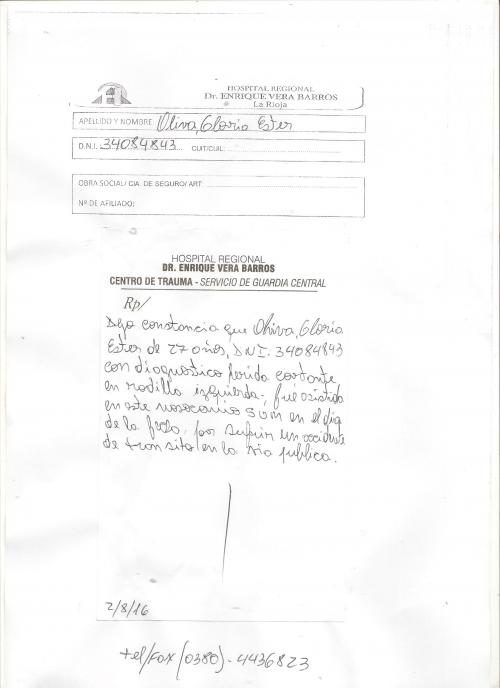 HOSPITAL REGIONAL
Dr. ENRIQUE VERA BARROS
La Rioja
APELLIDO Y NOMBRE: Oliva, Gloria Ester
D.N.I. 34084843 CUIT/CUIL:
OBRA SOCIAL/ CIA. DE SEGURO/ ART
Nº DE AFILIADO:
HOSPITAL REGIONAL
DR. ENRIQUE VERA BARROS
CENTRO DE TRAUMA - SERVICIO DE GUARDIA CENTRAL
Rp/
Dejo constancia que Oliva, Gloria
Ester de 27 años, D.N.I. 34084843
con diagnostico herida cortante
en rodilla izquierda, fue asistida
en este nosocomio en el dia
de la fecha, por sufrir un accidente
de transito en la via publica.
2/8/16
tel/Fax (0380)-4436823